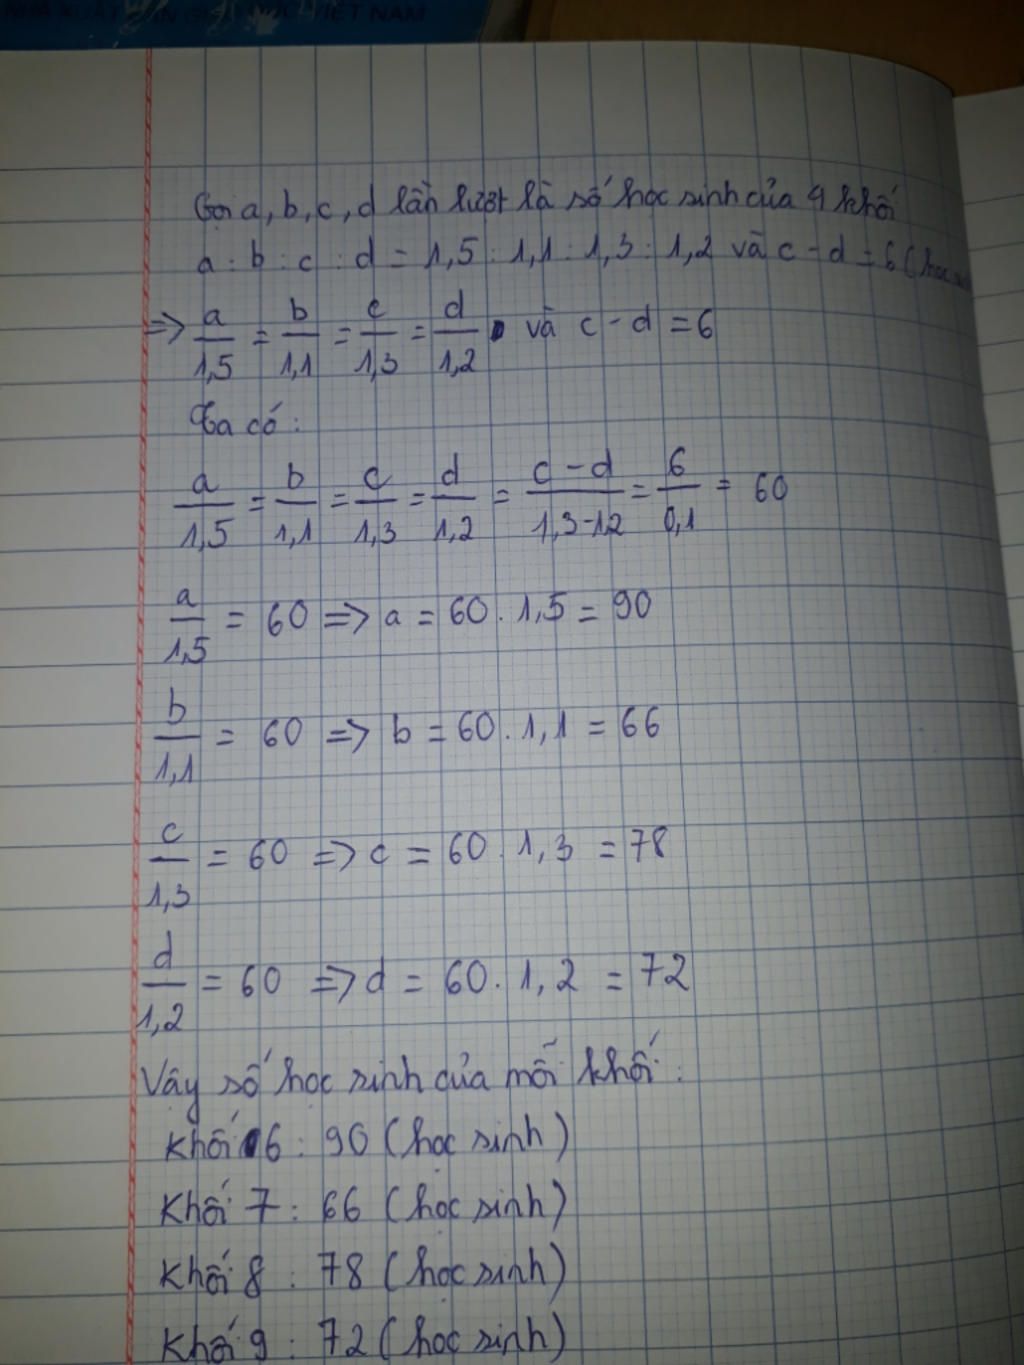 NHÀ XUẤT BẢN GIÁO DỤC VIỆT NAM
Gọi a, b, c, d lần lượt là số học sinh của 4 khối
a : b : c : d = 1,5 : 1,1 : 1,3 : 1,2 và c - d = 6 (học
=> a/1,5 = b/1,1 = c/1,3 = d/1,2 và c - d = 6
Ta có :
a/1,5 = b/1,1 = c/1,3 = d/1,2 = c - d/1,3 - 1,2 = 6/0,1 = 60
a/1,5 = 60 => a = 60 . 1,5 = 90
b/1,1 = 60 => b = 60 . 1,1 = 66
c/1,3 = 60 => c = 60 . 1,3 = 78
d/1,2 = 60 => d = 60 . 1,2 = 72
Vậy số học sinh của mỗi khối :
Khối 6 : 90 (học sinh)
Khối 7 : 66 (học sinh)
Khối 8 : 78 (học sinh)
Khối 9 : 72 (học sinh)